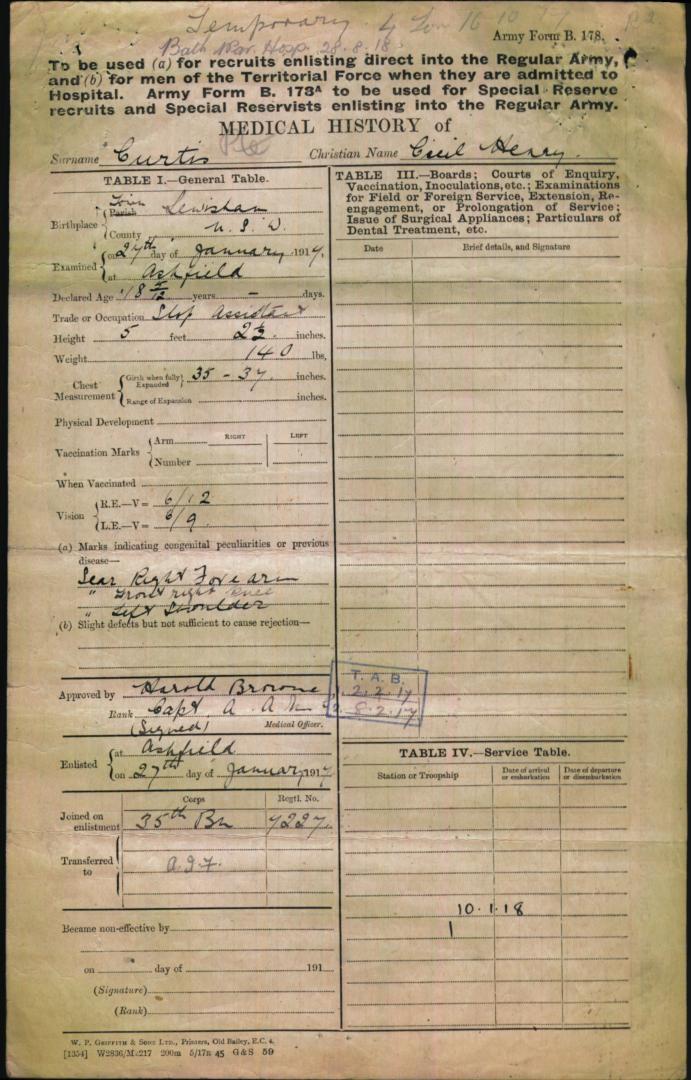 Temporary. 4 Lon 16 10 17
Bath War. Hosp. 28.8.18
Army Form B. 178.
To be used (a) for recruits enlisting direct into the Regular Army,
and (b) for men of the Territorial Force when they are admitted to
Hospital. Army Form B. 178A to be used for Special Reserve
recruits and Special Reservists enlisting into the Regular Army.
MEDICAL HISTORY of
Surname Curtis Christian Name Cecil Henry.
TABLE I.—General Table.
Birthplace Town Parish Lewisham
County N. S. W.
Examined on 27th day of January 1917.
at Ashfield
Declared Age 18 5/12 years – days.
Trade or Occupation Shop Assistant
Height 5 feet 2½ inches.
Weight 140 lbs.
Chest Measurement Girth when fully Expanded 35 - 37 inches.
Range of Expansion inches.
Physical Development
Vaccination Marks Arm RIGHT LEFT
Number
When Vaccinated
Vision R.E.—V= 6/12
L.E.—V= 6/9
(a) Marks indicating congenital peculiarities or previous
disease—
Scar Right Forearm
" Front right knee
" Left Shoulder
(b) Slight defects but not sufficient to cause rejection—
Approved by Harold Browne
Rank Capt A. A. M. C
(Signed) Medical Officer.
Enlisted at Ashfield
on 27th day of January 1917
Corps Regtl. No.
Joined on enlistment 35th Bn 7227.
Transferred to A.I.F.
Became non-effective by
on day of 191
(Signature)
(Rank)
W. P. GRIFFITH & SONS LTD., Printers, Old Bailey, E.C. 4.
[1354] W2836/M2217 200m 5/17R 45 G & S 59
TABLE III.—Boards; Courts of Enquiry,
Vaccination, Inoculations, etc.; Examinations
for Field or Foreign Service, Extension, Re-
engagement, or Prolongation of Service;
Issue of Surgical Appliances; Particulars of
Dental Treatment, etc.
Date Brief details, and Signature
T. A. B.
1. 2.2.17
2. 8.2.17
TABLE IV.—Service Table.
Station or Troopship Date of arrival or embarkation Date of departure or disembarkation
10.1.18